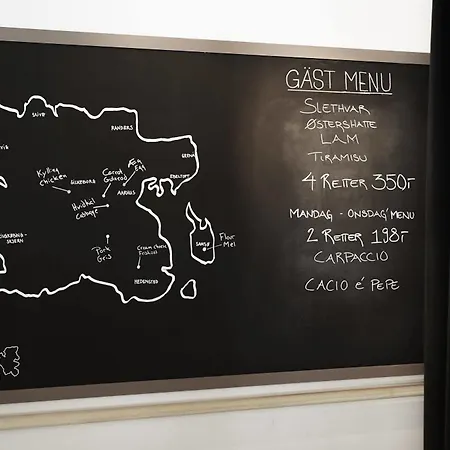 SKIVE
RANDERS
GRENA
EBELTOFT
Kylling
Chicken
SILKEBORG
Carrot
Gulerod
Æg
Egg
AARHUS
Hvidkål
Cabbage
SKERN
Pork
Gris
Cream cheese
Friskost
HEDENSTED
SAMSØ
Flour
Mel
GÄST MENU
SLETHVAR
ØSTERSHATTE
LAM
TIRAMISU
4 RETTER 350:-
MANDAG - ONSDAG MENU
2 RETTER 198:-
CARPACCIO
CACIO é PEPE